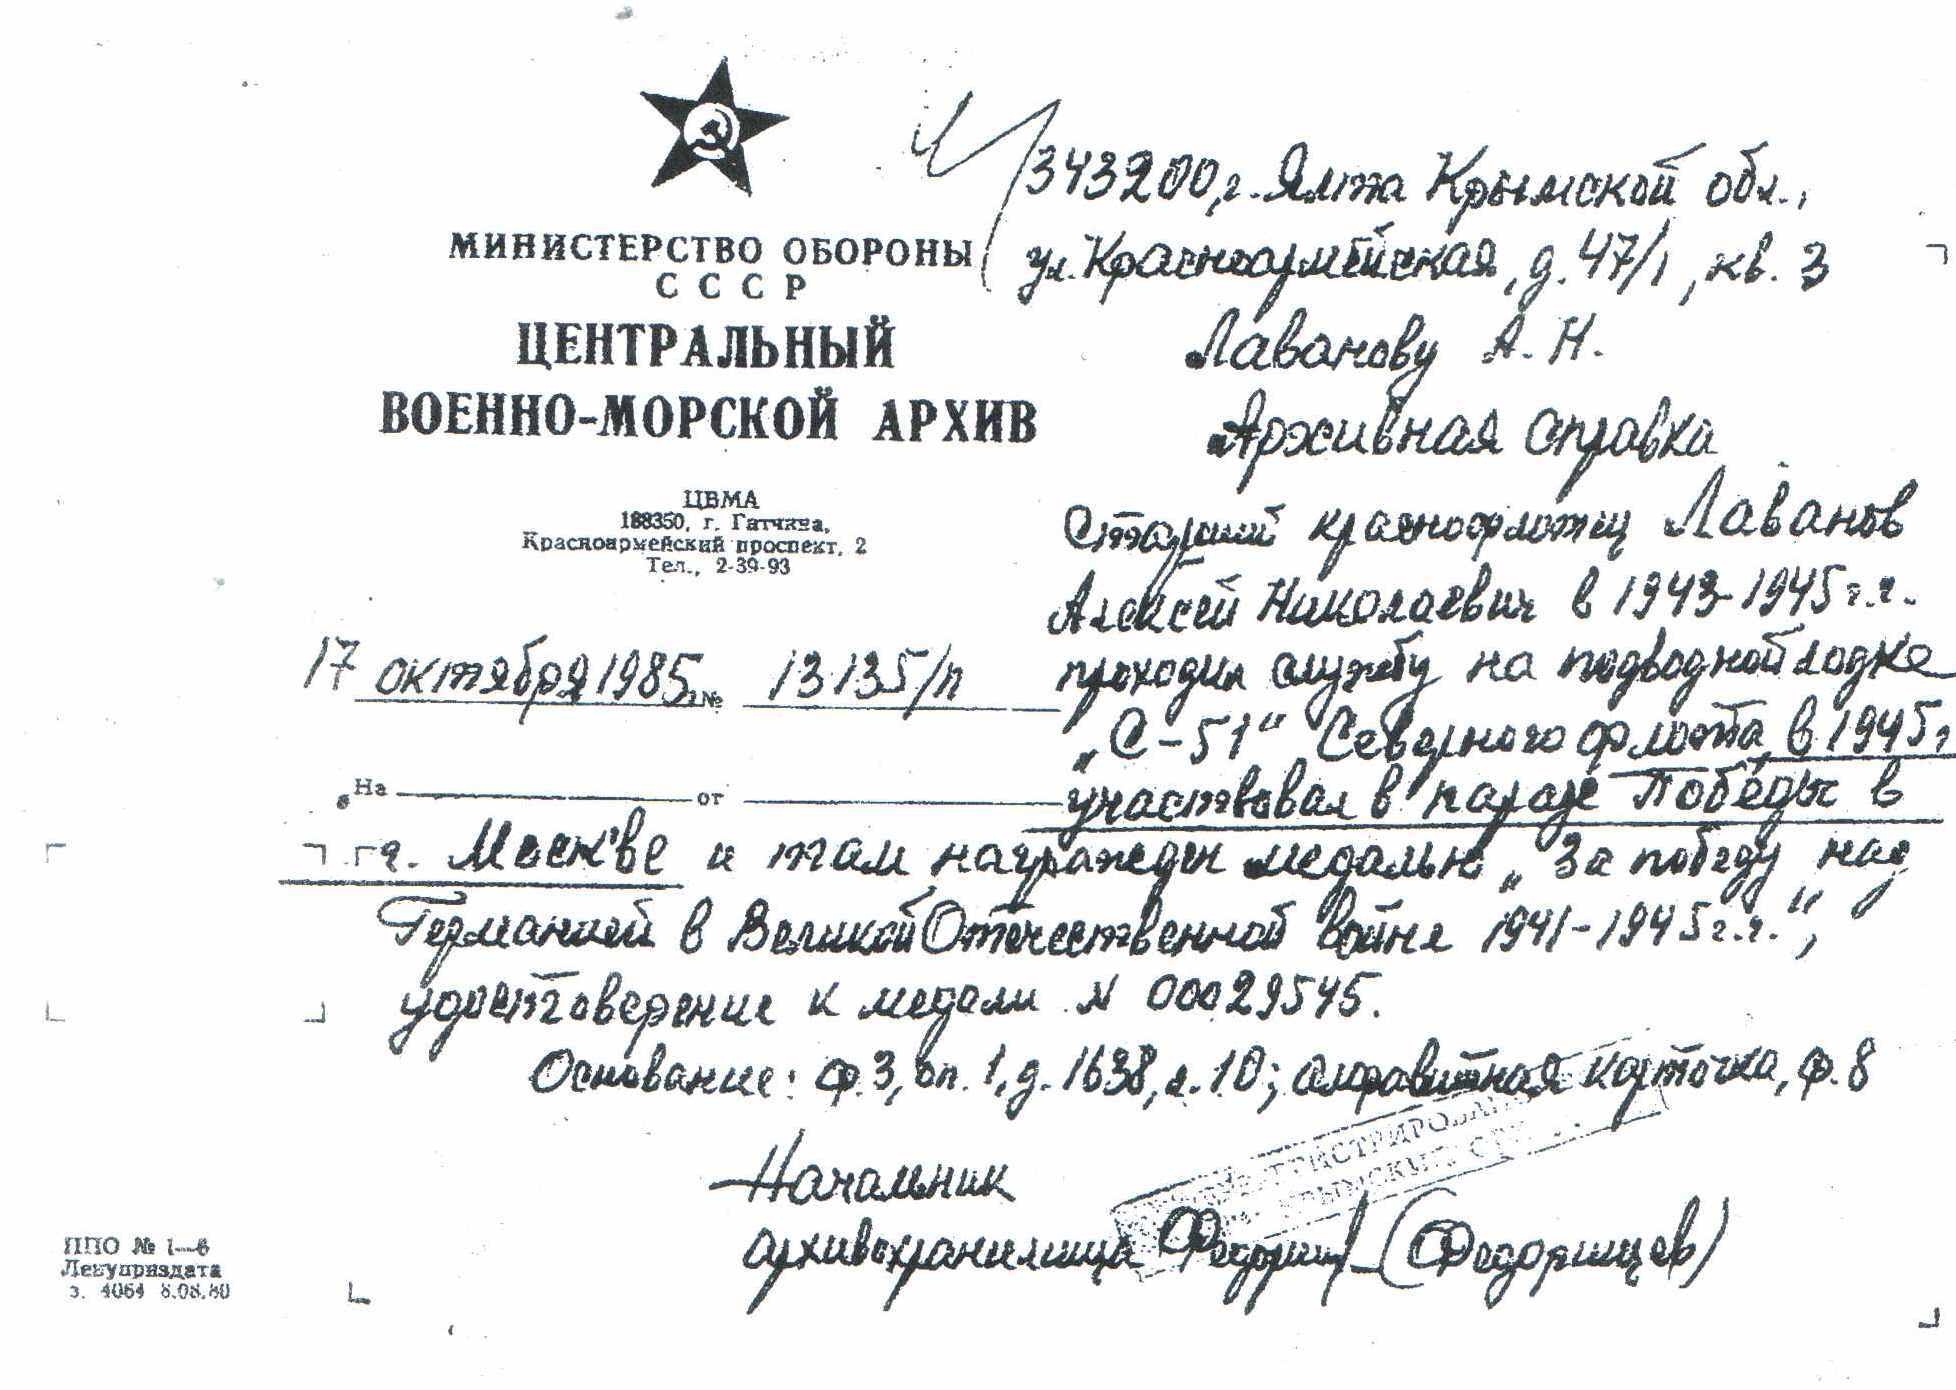 МИНИСТЕРСТВО ОБОРОНЫ
СССР
ЦЕНТРАЛЬНЫЙ
ВОЕННО-МОРСКОЙ АРХИВ
ЦВМА
188350, г. Гатчина,
Красноармейский проспект, 2
Тел., 2-39-93
17 октября 1985 г. № 13135/п
На от
343200, г. Ялта Крымской обл.,
ул. Красноармейская, д. 47/1, кв. 3
Лаванову А. Н.
Архивная справка
Старший краснофлотец Лаванов
Алексей Николаевич в 1943-1945 г.г.
проходил службу на подводной лодке
„С-51“ Северного флота, в 1945 г
участвовал в параде Победы в
г. Москве и там награжден медалью „За победу над
Германией в Великой Отечественной войне 1941-1945 г.г.“,
удостоверение к медали N 0029545.
Основание: ф. 3, оп. 1, д. 1638, л. 10; алфавитная карточка, ф. 8
Начальник
архивохранилища (Федорищев)
ППО № 1—6
Ленуприздата
з. 4064 8.08.80